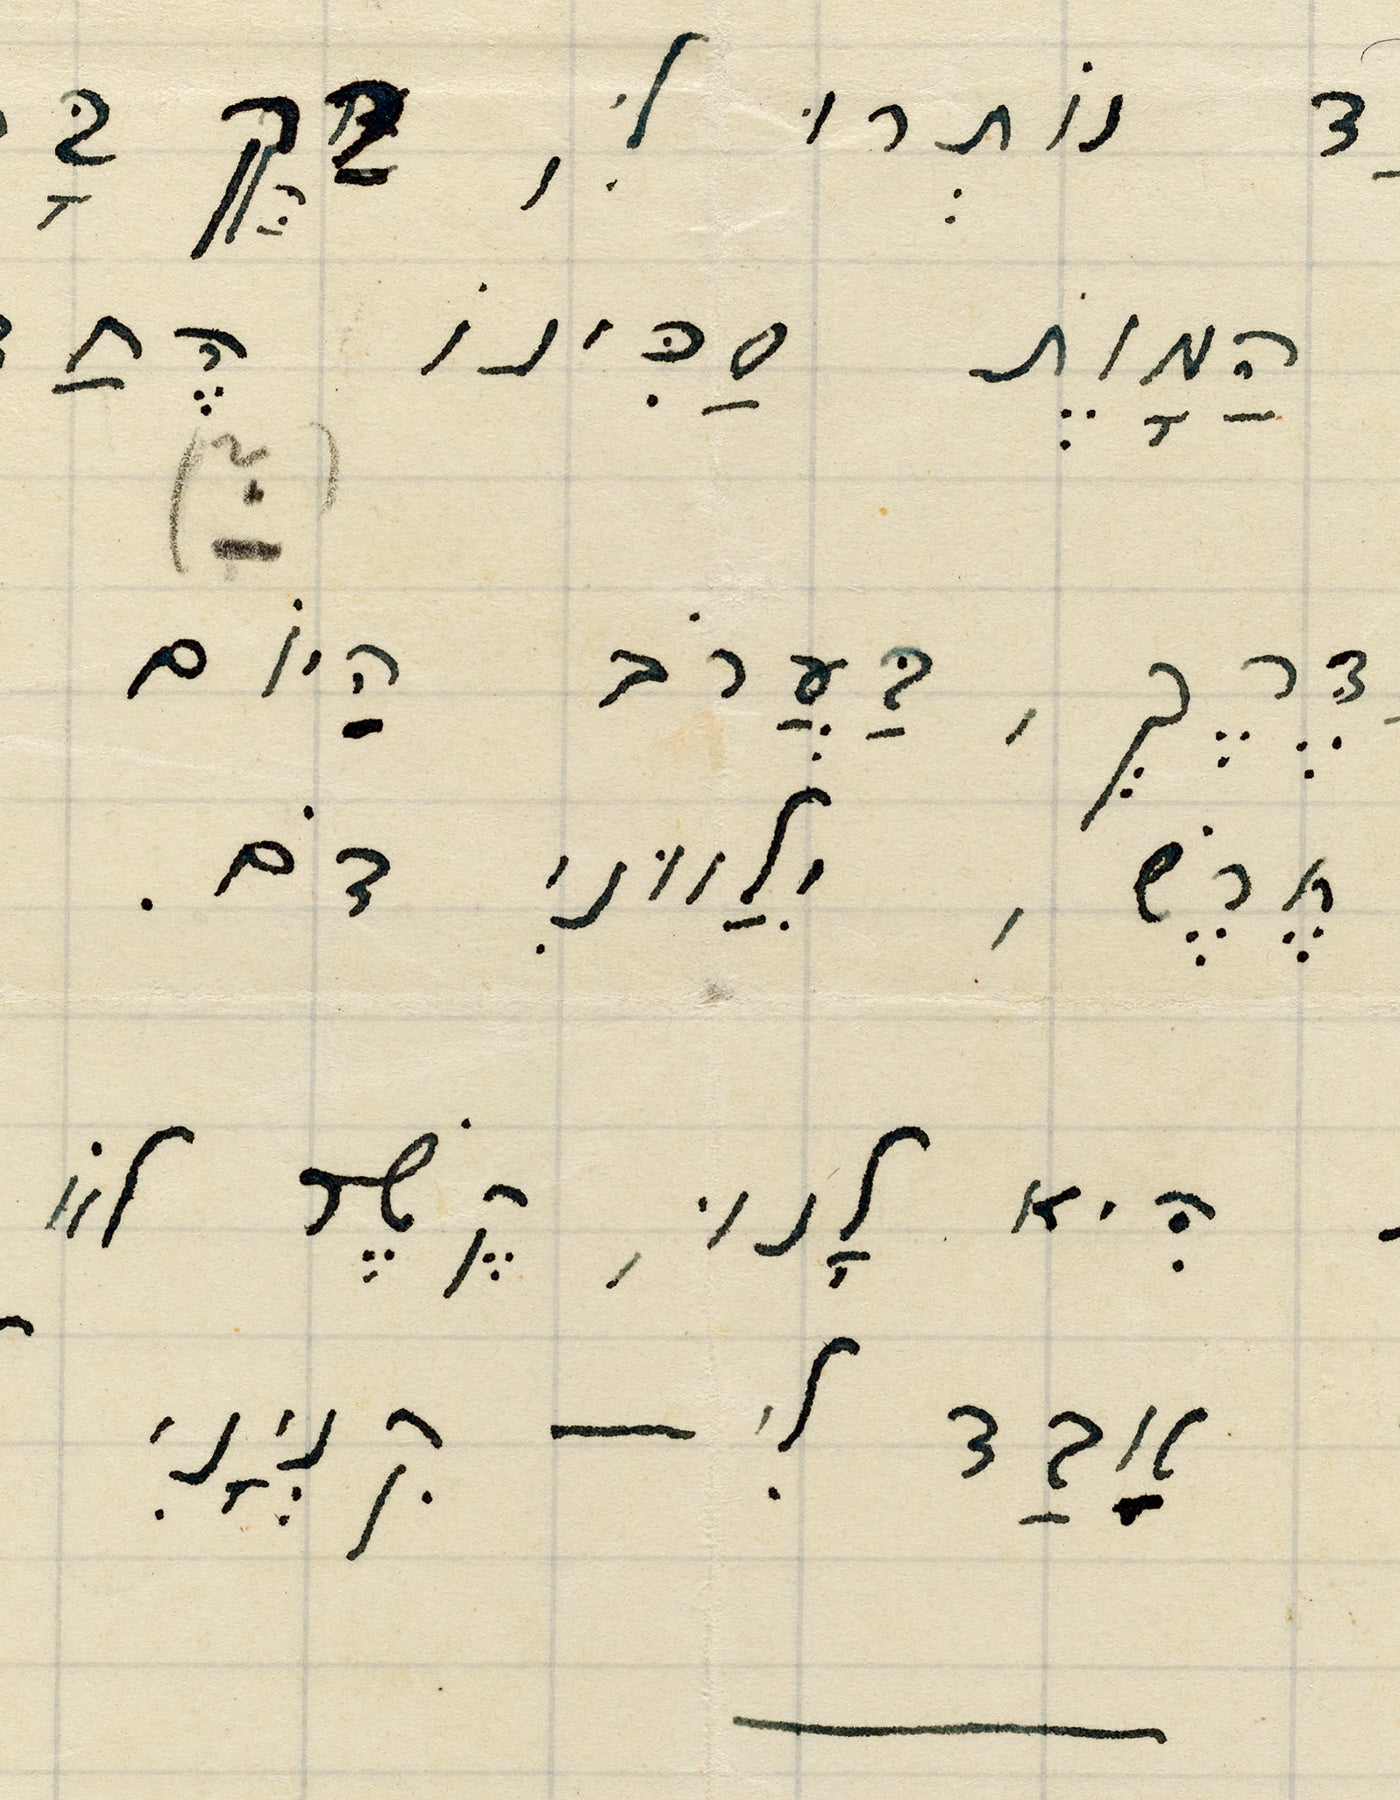 נוֹתְרוּ לִי, רַק
הַמָּוֶת סַכִּינוֹ הֶחַ
דֶּרֶךְ, בַּעֲרֹב הַיּוֹם
חֶרֶשׁ, יְלַוּוּנִי דֹם.
הִיא לָנוּ, קֶשֶׁר לוֹ
אָבַד לִי — קִנְיָנִי